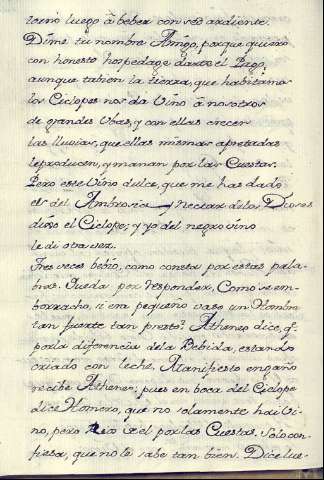 luego à beber con sed ardiente.
Dime tu nombre Amigo, porque quiero
con honesto hospedage darte el Pago,
aunque tabien la tierra, que habitamos
los Ciclopes nos da Vino à nosotros
de grandes Ubas, y con ellas crecen
las lluvias, que ellas mismas apretadas
le producen, y manan por las Cuestas.
Pero este Vino dulce, que me has dado
es del Ambrosia y Nectar de los Dioses
dixo el Ciclope; y yo del negro vino
le di otra vez.
Tres veces bebio, como consta por estas pala-
bras. Queda por responder, Como se em-
borracho, si en pequeño vaso un Hombre
tan fuerte tan presto? Atheneo dice, q.e
por la diferencia de la Bebida, estando
criado con leche. Manifiesto engaño
recibe Atheneo; pues en boca del Ciclope
dice Homero, que no solamente hai Vi-
no, pero el por las Cuestas. Solo con-
fiesa, que no le sabe tan bien. Dice lue-